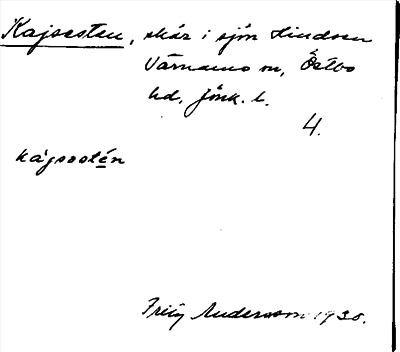 Kajsesten, skär i sjön Lindsen
Värnamo sn, Östbo
hd, Jönk. l.
4.
kàjsestén
Frity Andersson 1935.